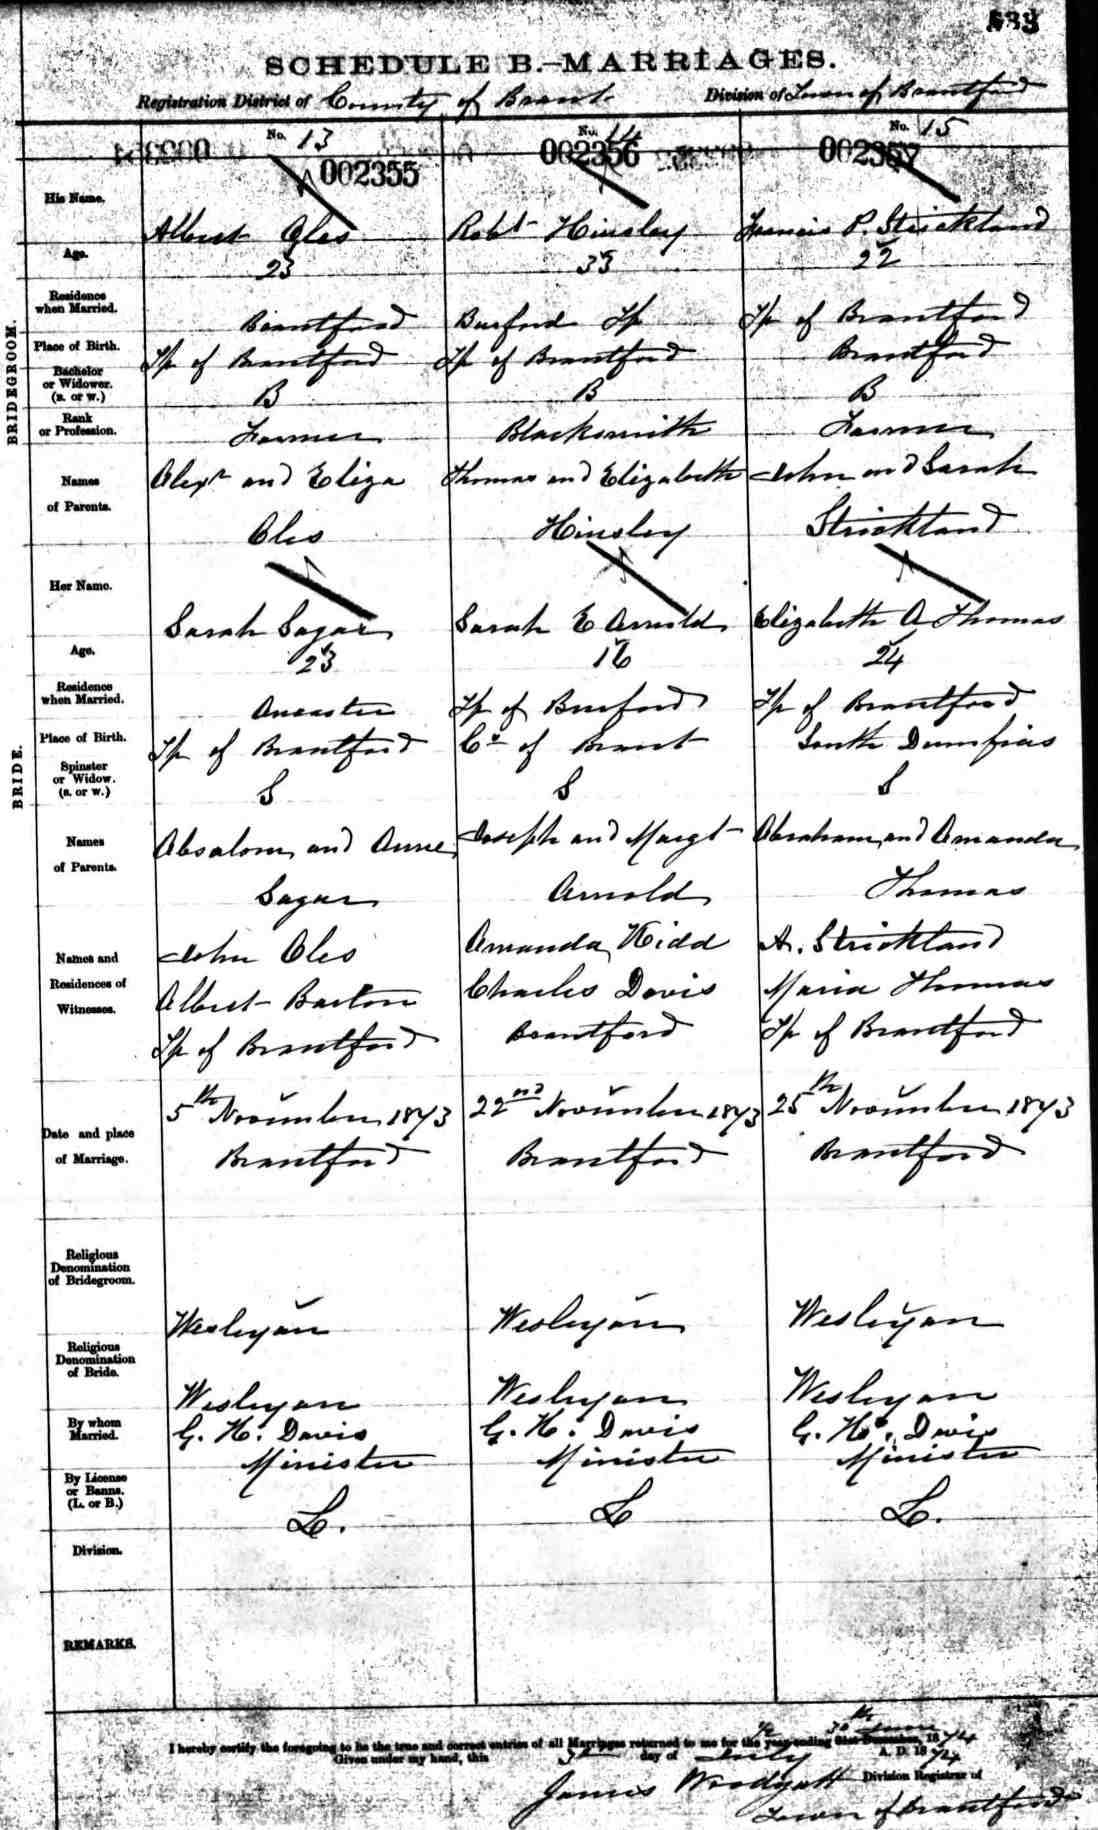 533
SCHEDULE B.—MARRIAGES.
Registration District of County of Brant Division of Town of Brantford
No. 13 No. 14 No. 15
002355 002356 002357
His Name.
Albert Oles Robt Hinsley Francis P. Strickland
Age.
23 33 22
Residence when Married.
Brantford Burford Tp Tp of Brantford
Place of Birth.
Tp of Brantford Tp of Brantford Brantford
Bachelor or Widower. (B. or W.)
B B B
Rank or Profession.
Farmer Blacksmith Farmer
BRIDEGROOM.
Names of Parents.
Alexr and Eliza Thomas and Elizabeth John and Sarah
Oles Hinsley Strickland
Her Name.
Sarah Sagar Sarah E Arnold Elizabeth A Thomas
Age.
23 16 24
Residence when Married.
Ancaster Tp of Burford Tp of Brantford
Place of Birth.
Tp of Brantford Co of Brant South Dumfries
Spinster or Widow. (S. or W.)
S S S
BRIDE.
Names of Parents.
Absalom and Anne Joseph and Margt Abraham and Amanda
Sagar Arnold Thomas
Names and Residences of Witnesses.
John Oles Amanda Kidd A. Strickland
Albert Barton Charles Davis Maria Thomas
Tp of Brantford Brantford Tp of Brantford
Date and place of Marriage.
5th November 1873 22nd November 1873 25th November 1873
Brantford Brantford Brantford
Religious Denomination of Bridegroom.
Wesleyan Wesleyan Wesleyan
Religious Denomination of Bride.
Wesleyan Wesleyan Wesleyan
By whom Married.
G. H. Davis G. H. Davis G. H. Davis
Minister Minister Minister
By License or Banns. (L. or B.)
L. L L.
Division.
REMARKS.
I hereby certify the foregoing to be the true and correct entries of all Marriages returned to me for the ½ year ending 30th June 31st December, 1874
Given under my hand, this day of July A. D. 1874
James Woodyatt Division Registrar of
Town of Brantford